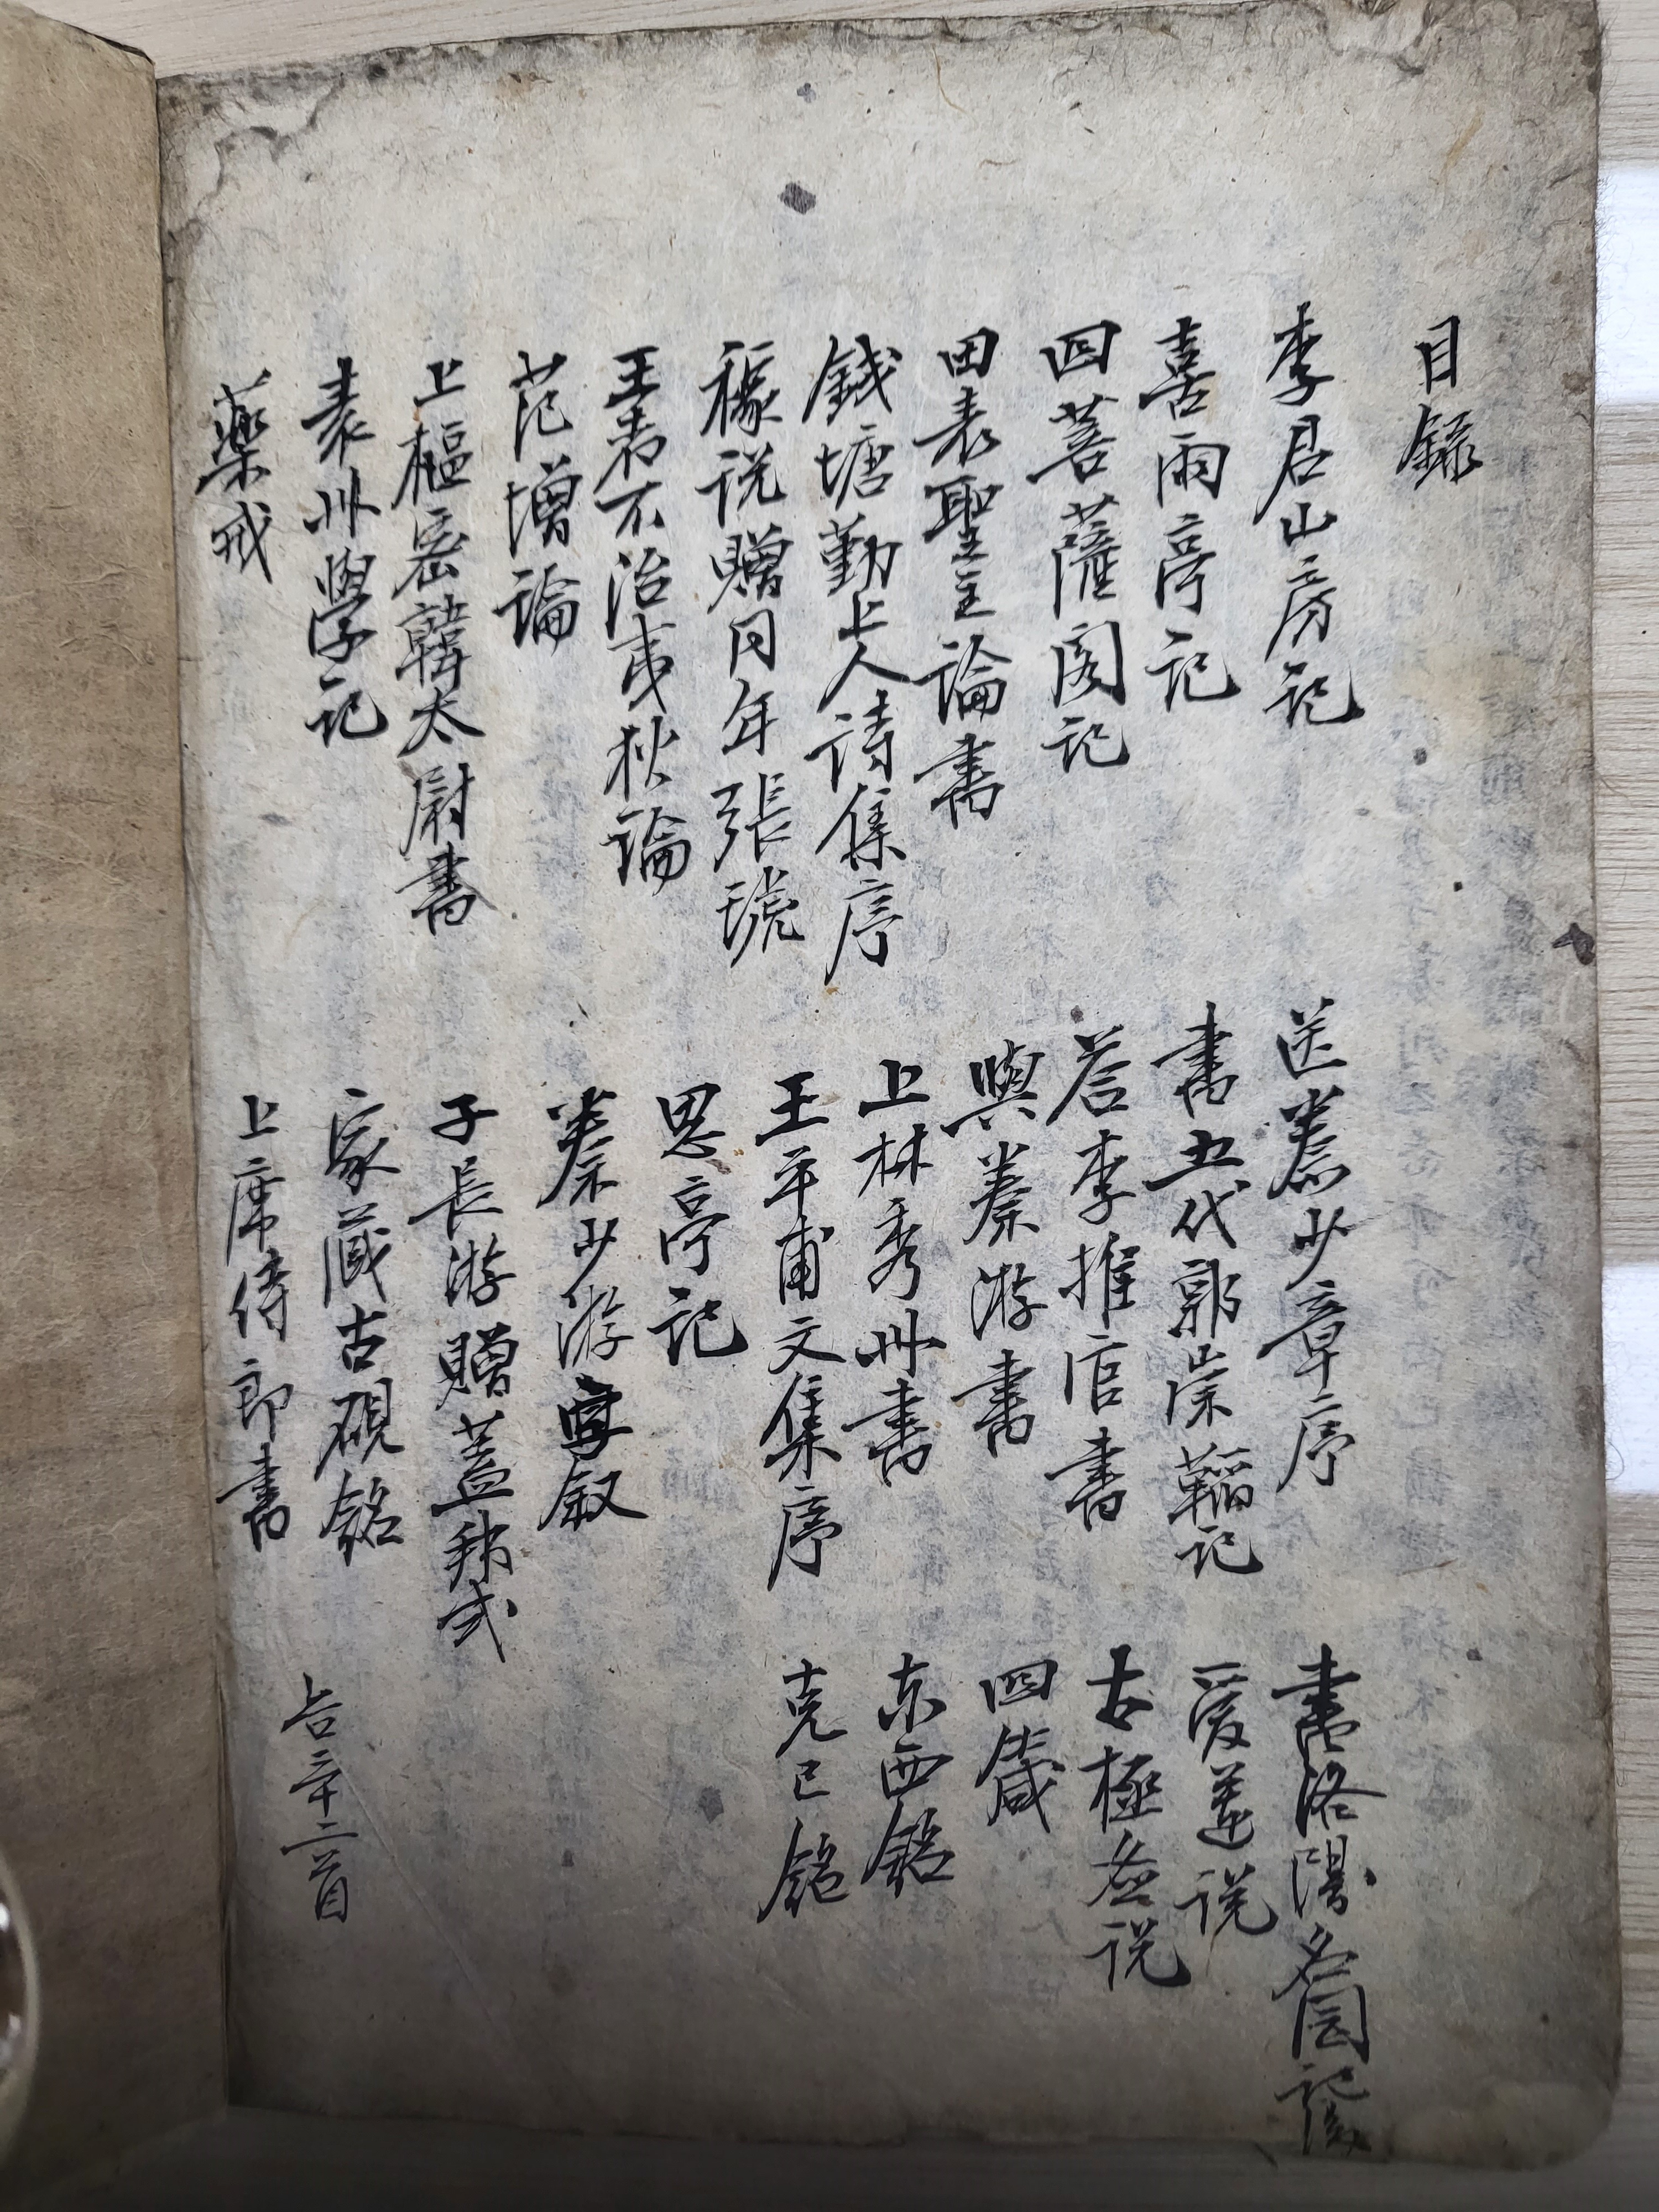 目錄
李君山房記
喜雨亭記
四菩薩閣記
田表聖主論書
錢塘勤上人詩集序
稼說贈同年張琥
王者不治夷狄論
范增論
上樞密韓太尉書
袁州學記
藥戒
送秦少章序
書五代郭崇韜記
答李推官書
與秦游書
上林秀州書
王平甫文集序
思亭記
秦少游字叙
子長游贈盖邦式
家藏古硯銘
上席侍郎書
書洛陽名園記後
愛蓮說
太極啚說
四箴
东西銘
克己銘
合二首